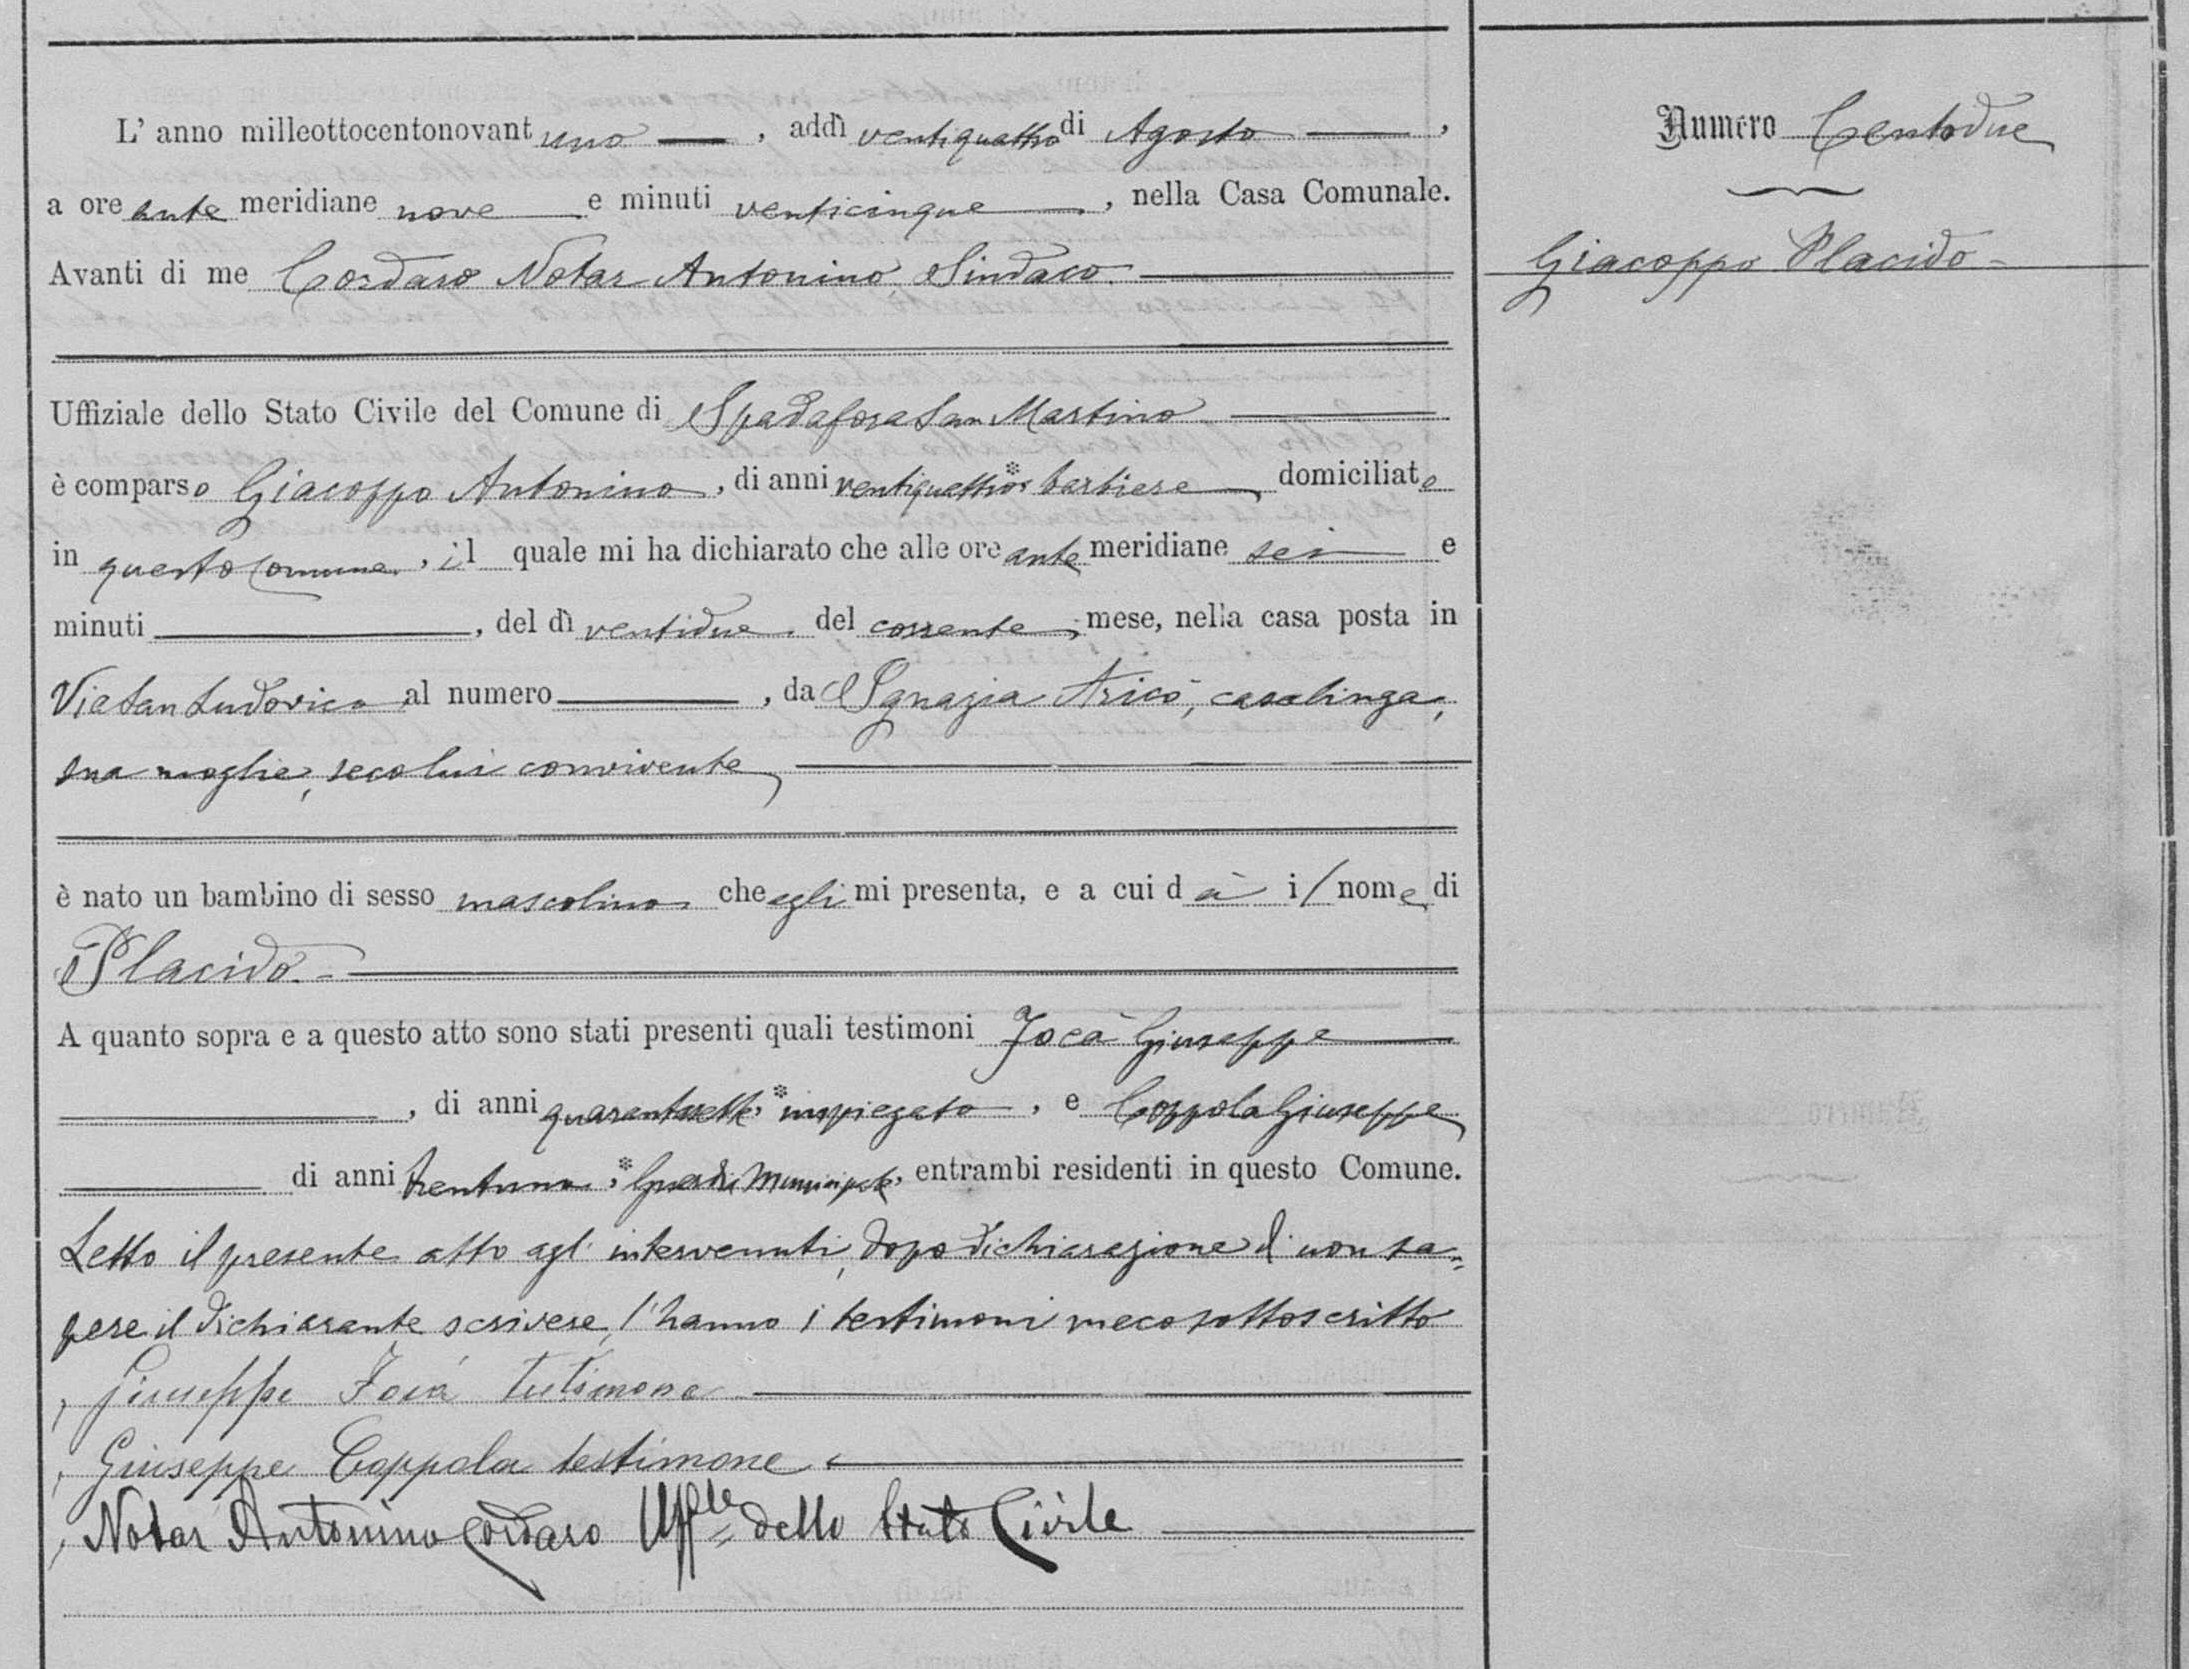 Numero Centodue
Giacoppo Placido
L' anno milleottocentonovant uno, addì ventiquattro di Agosto,
a ore ante meridiane nove e minuti venticinque, nella Casa Comunale.
Avanti di me Cordaro Notar Antonino Sindaco
Uffiziale dello Stato Civile del Comune di Spadafora San Martino
è comparso Giacoppo Antonino, di anni ventiquattro, * barbiere, domiciliato
in questo Comune, il quale mi ha dichiarato che alle ore ante meridiane sei e
minuti, del dì ventidue del corrente mese, nella casa posta in
Via San Ludovico al numero, da Ignazia Aricò, casalinga,
sua moglie, seco lui convivente,
è nato un bambino di sesso mascolino che egli mi presenta, e a cui dà il nome di
Placido.
A quanto sopra e a questo atto sono stati presenti quali testimoni Jocà Giuseppe
, di anni quarantasette, * impiegato, e Coppola Giuseppe
di anni trentuno, * Guardia Municipale, entrambi residenti in questo Comune.
Letto il presente atto agl' intervenuti, dopo dichiarazione di non sa=
pere il dichiarante scrivere, l'hanno i testimoni meco sottoscritto
Giuseppe Jocà testimone
Giuseppe Coppola testimone
Notar Antonino Cordaro Uff.le dello Stato Civile